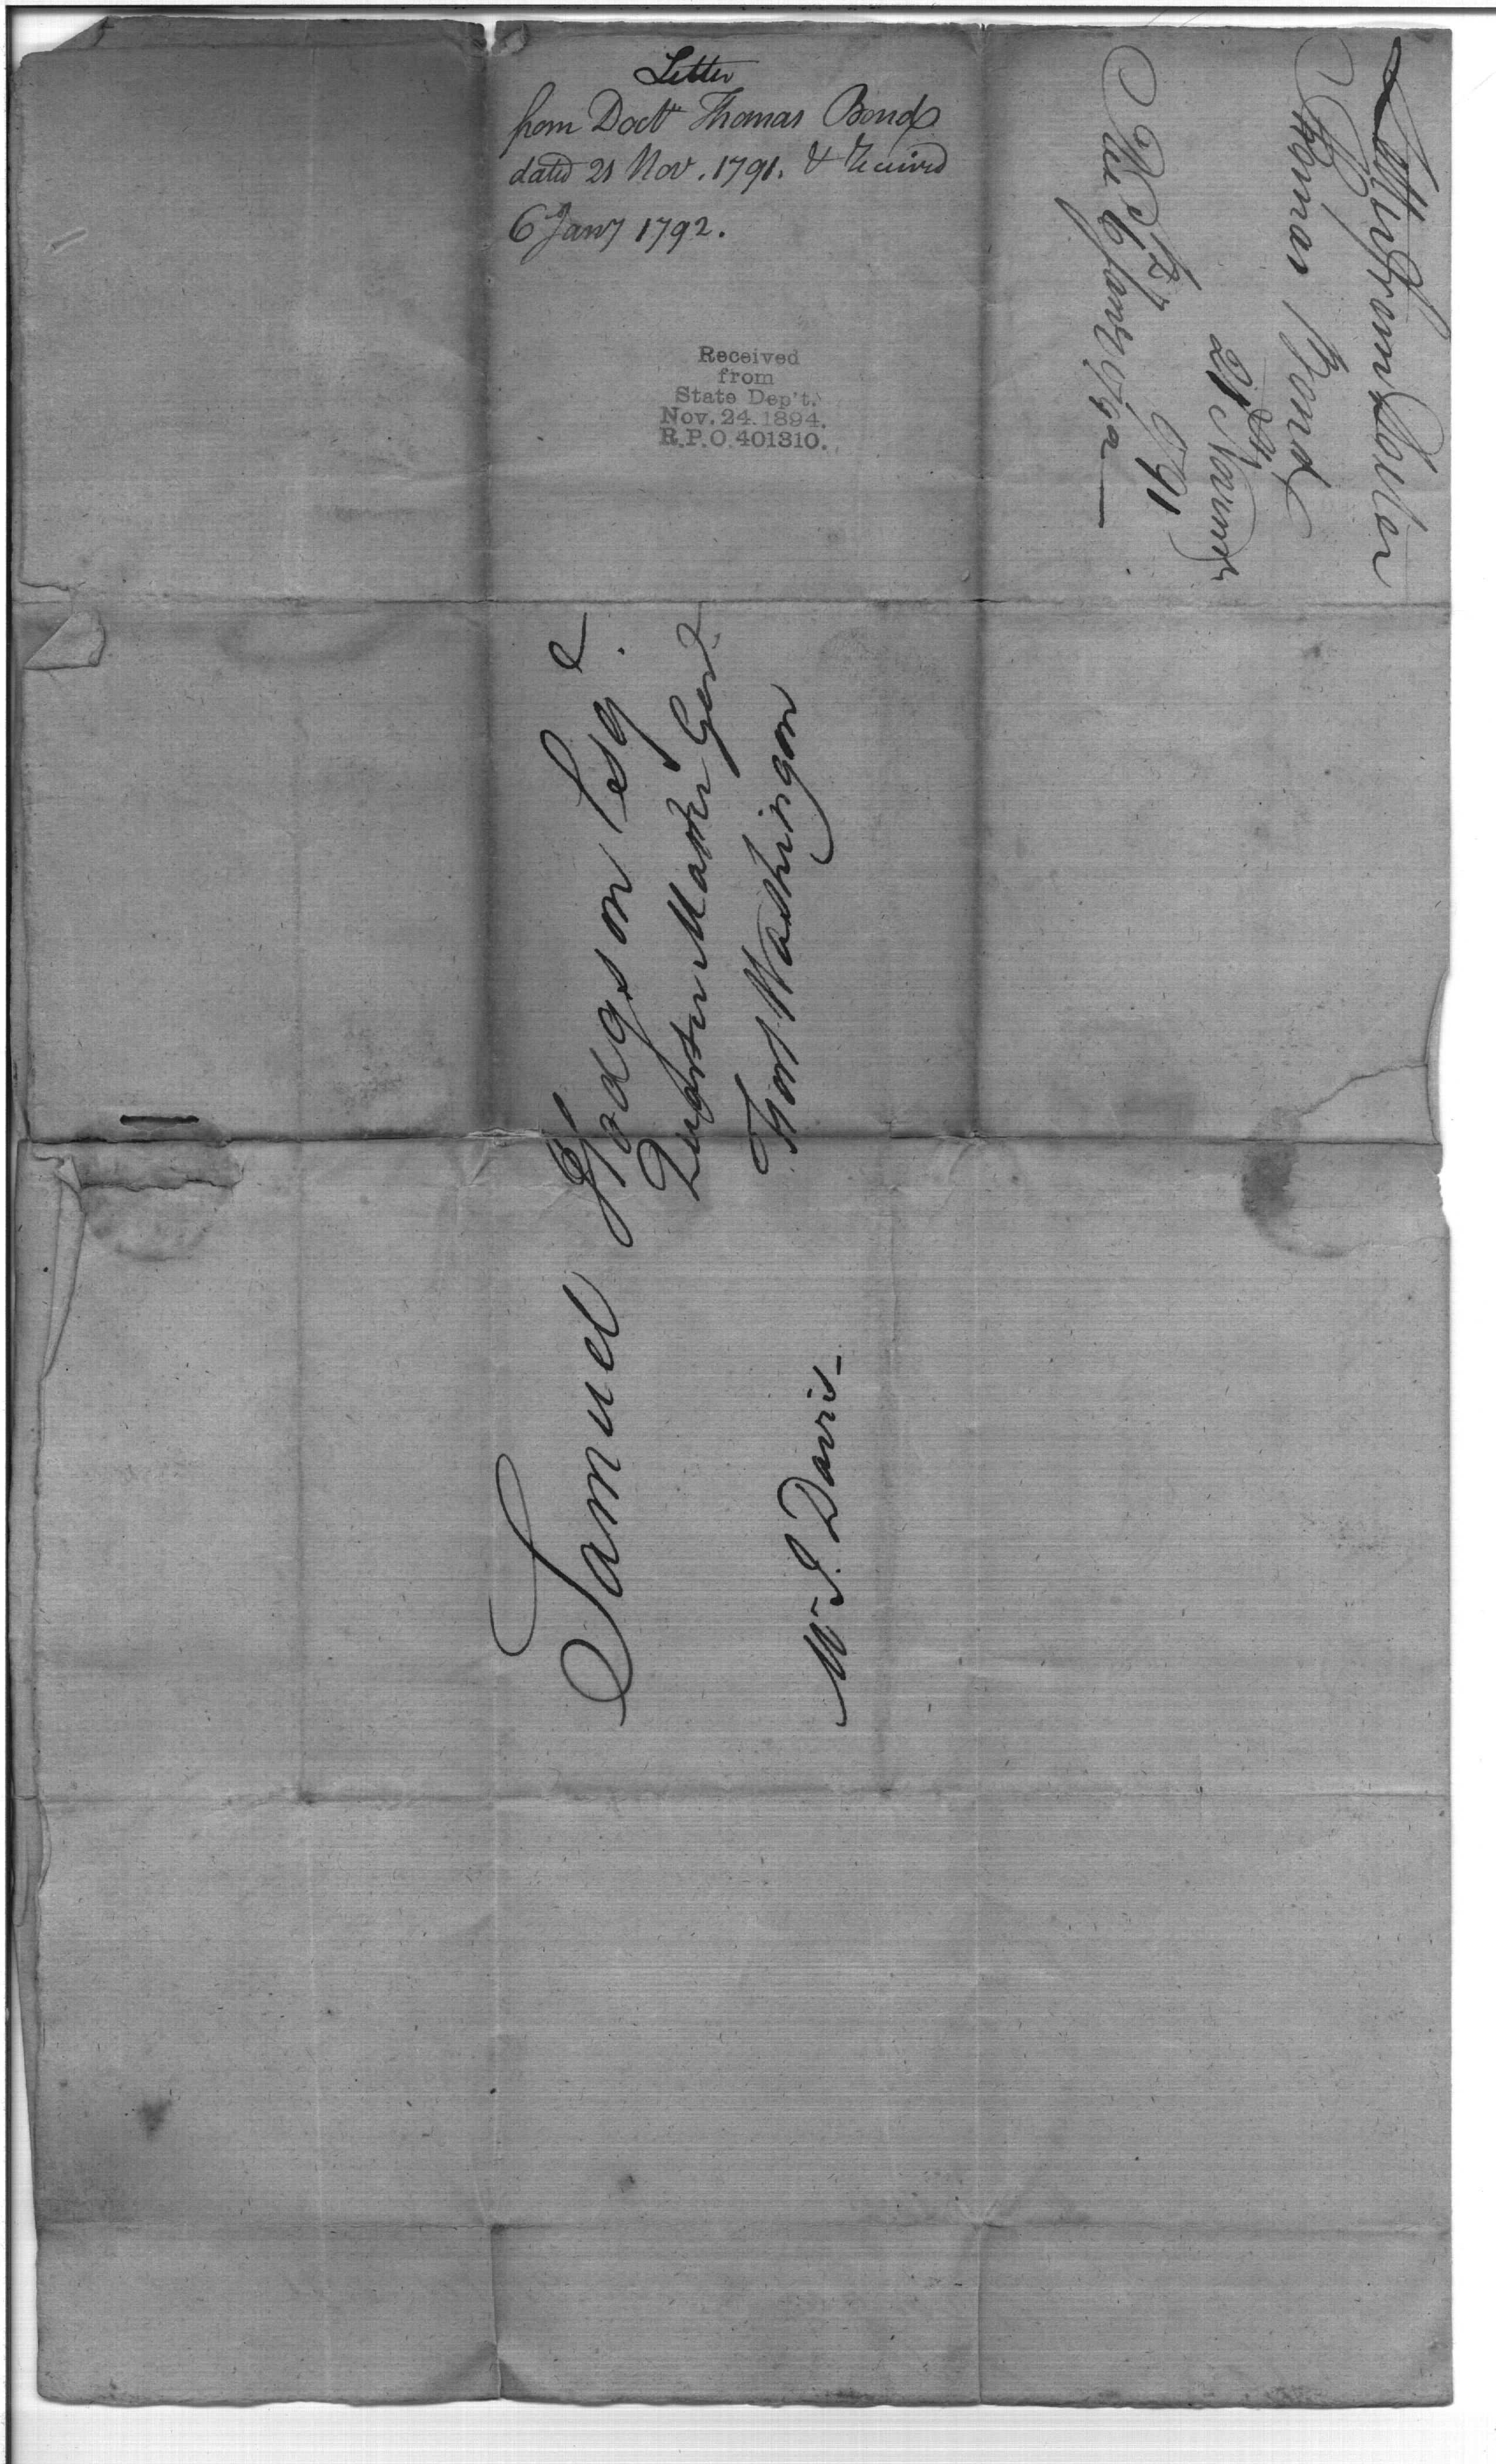 Letter
from Doctr Thomas Bond
dated 21 Nov. 1791. & received
6 Jany 1792.
Received
from
State Dep't.
Nov. 24. 1894.
R.P.O. 401310.
Letter from Doctor
Thomas Bond
21st Novemr
1791
Rec 6 Jany 1792
Samuel Hodgson Esqr.
Quarter Master Genl
Fort Washington
Mr J. Davis